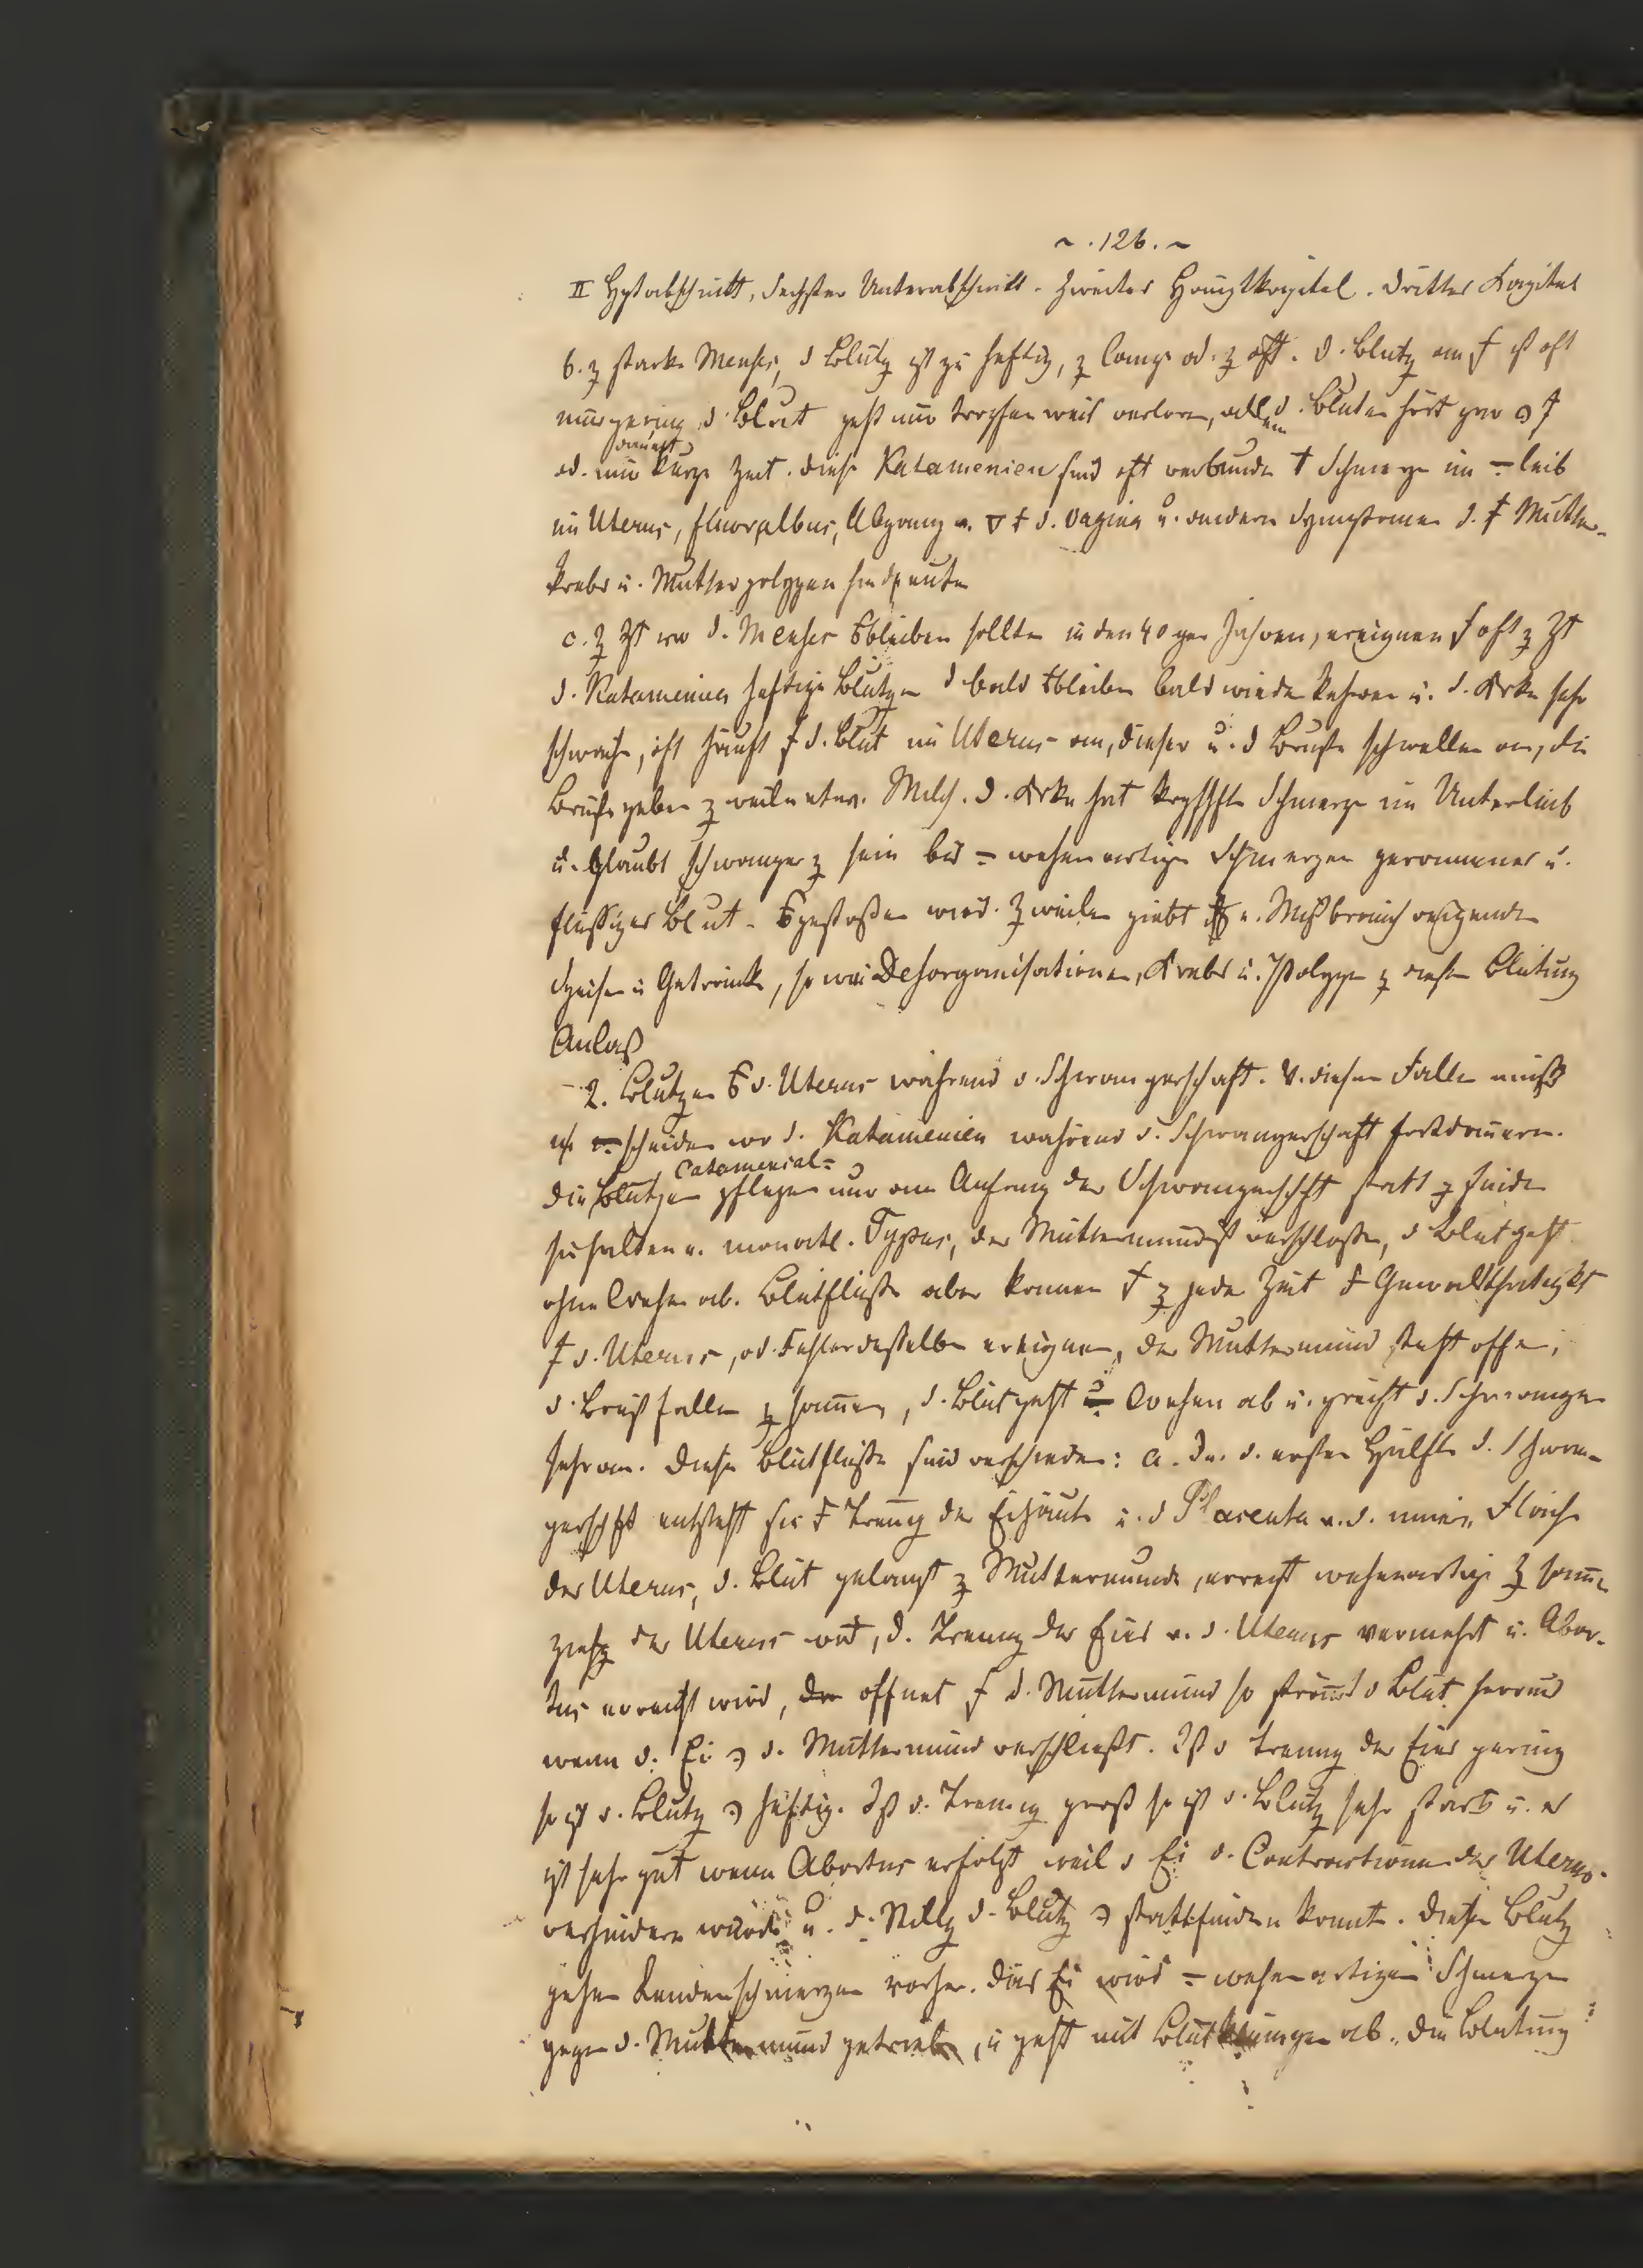 ~ . 126 . ~
II Hptabschnitt, Sechster Unterabschnitt. Zweites Hauptkapitel. Drittes Kapitel
b. z starke Menses, d Blutg ist zu heftig, z lange od. z oft. D. Blutg am ist oft
nur gering d. Blut geht nur tropfenweis verloren, d. Bluten hört gar
dauert
od. nur kurze Zeit. diese Katamenien sind oft verbunden Schmerzen im = leib
im Uterus, fluor albus, Abgang v. d. Vagina u. andern Symptomen d. Mutter-
krebs u. Mutterpolypen
c. z Zt wo d. Menses bleiben sollten in den 40ger Jahren, ereignen oft z Zt
d. Katamenien heftige Blutgen d bald bleiben bald wieder kehren u. d. Krke sehr
schwach, oft häuft d. Blut im Uterus an, dieser u. d Brüste schwellen an, die
Brüste geben z weilen etwas Milch. D. Krke hat Schmerzen im Unterleib
u. glaubt schwanger z sein bis = wehenartigen Schmerzen geronnenes u.
flüssiges Blut gestoßen wird. Z weilen giebt Mißbrauch reizender
Speisen u Getränke, so wie Desorganisationen, Krebs u. Polypen z diesen Blutung
Anlaß
2. Blutgen d. Uterus während d. Schwangerschaft. V. diesen Fällen muß
scheiden wo d. Katamenien während d. Schwangerschaft fortdauern.
Catamenial=
die Blutgen pflegen nur am Anfang der Schwangerschft statt z finden
sie halten v. monatl. Typus, der Muttermund ist verschloßen, d Blut geht
ohne Wehen ab. Blutflüße aber können z jeder Zeit Gewaltthätigkt
d. Uterus, od. Fehler desselben ereignen, der Muttermund steht offen,
d. Brüste fallen z sammen, d. Blut geht = Wehen ab u. greift d. Schwangere
sehr an. Diese Blutflüße sind verschieden: a. In d. ersten Hälfte d. Schwan-
gerschft entsteht sie Trenng der Eihäute u. d Placenta v. d. innern Fläche
des Uterus, d. Blut gelangt z Muttermunde, erregt wehenartige Z sammen
ziehg des Uterus wod, d. Trenng des Eies v. d. Uterus vermehrt u. Abor-
tus erregt wird, öffnet d. Muttermund so strömt d Blut heraus
wenn d. Ei d. Muttermund verschließt. Ist d Trenng des Eies gering
so ist d. Blutg heftig. Ist d. Trenng groß so ist d. Blutg sehr stark u. es
ist sehr gut wenn Abortus erfolgt weil d Ei d. Contractionen des Uterus
verhindern würde u. d. Stillg d. Blutg stattfinden konnte. Diesen Blutg
gehen Lendenschmerzen vorher. Das Ei wird = wehenartigen Schmerzen
gegen d. Muttermund getrieben, u geht mit Blutklumpen ab. die Blutung